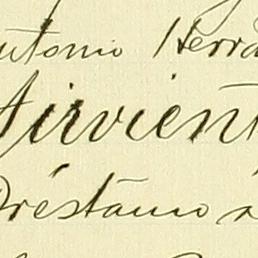 utonio Herra
Sirvient
Préstamo a